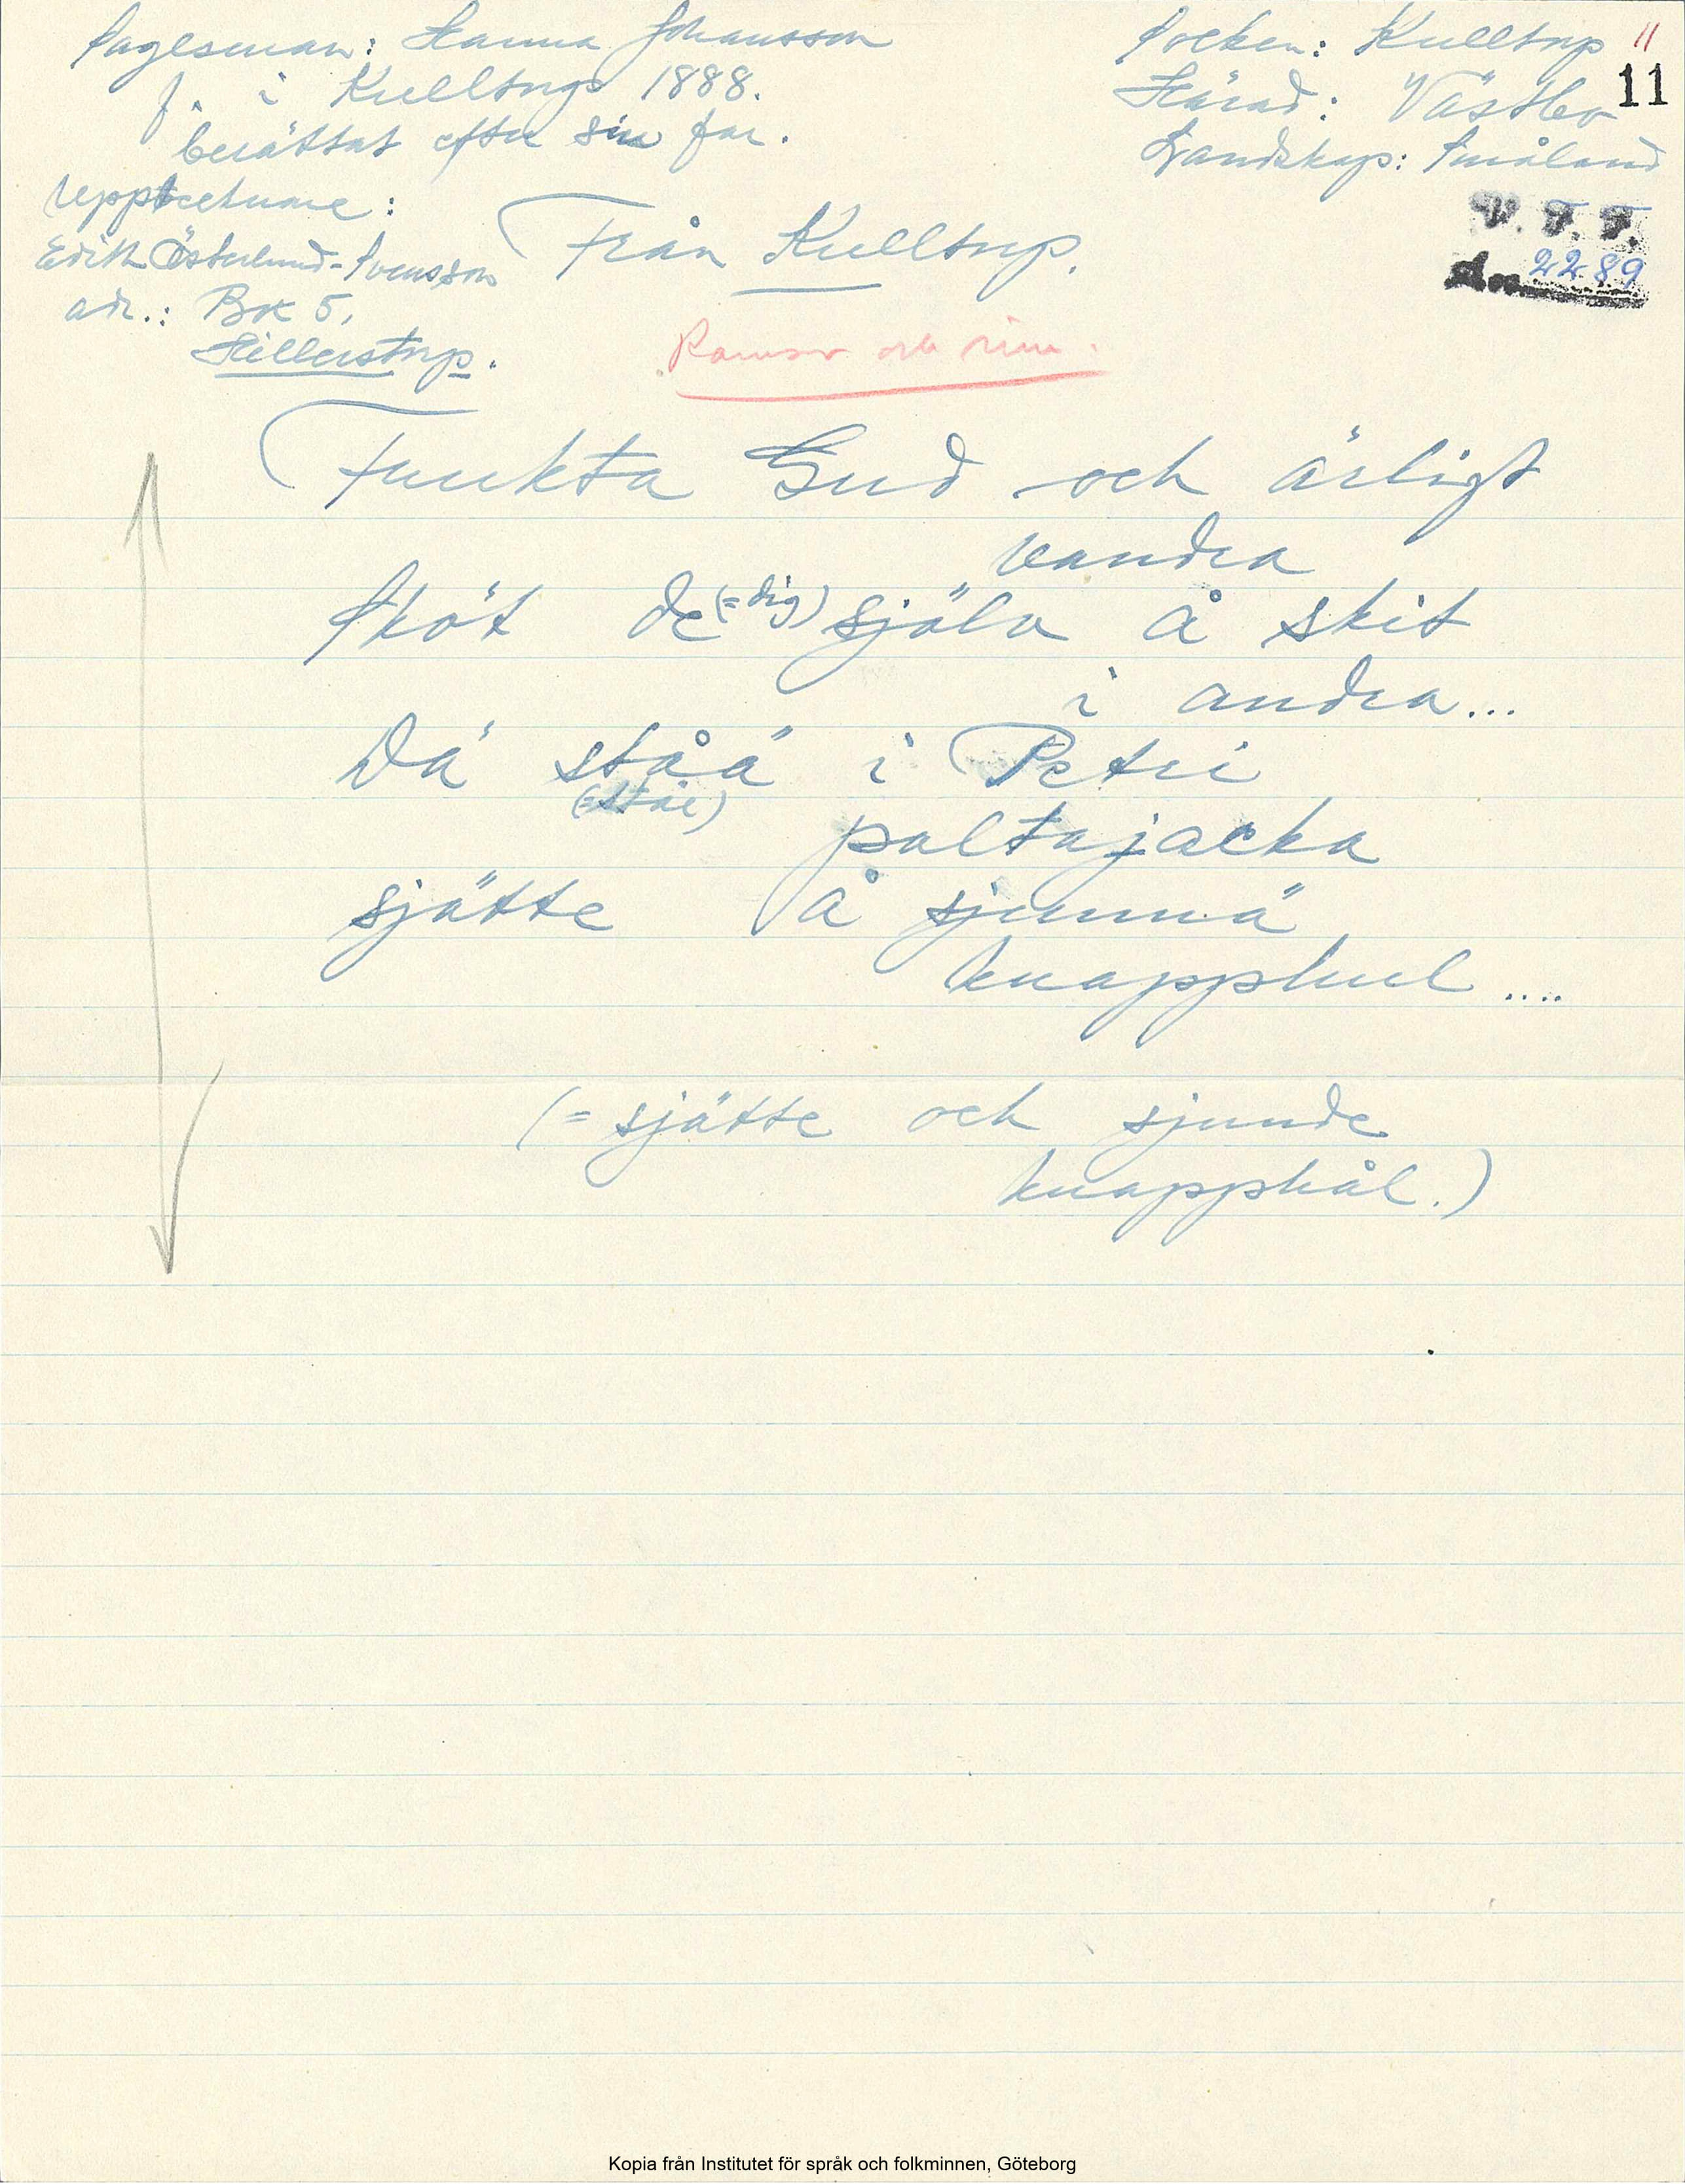 Sagesman: Hanna Johansson
f. i Kulltorp 1888.
berättat efter sin far.
Socken: Kulltorp 11
Härad: Västbo 11
Landskap: Småland
V. F. F.
2289
Upptecknare:
Edith Österlund-Svensson
adr.: Box 5,
Hillerstorp.
Från Kulltorp.
Ramsor och rim.
Frukta Gud och ärligt
vandra
Sköt de (=dig) själv å skit
i andra...
Dä ståä i Petri
(=ståe)
paltajacka
sjätte å sjunnä
knapphul ....
(= sjätte och sjunde
knapphål.)
Kopia från Institutet för språk och folkminnen, Göteborg